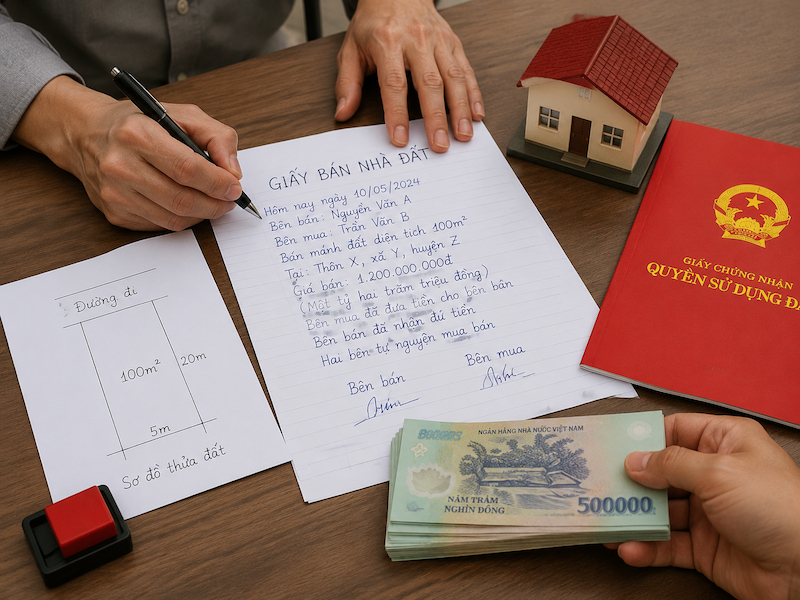 GIẤY BÁN NHÀ ĐẤT
Hôm nay ngày 10/05/2024
Bên bán: Nguyễn Văn A
Bên mua: Trần Văn B
Bán mảnh đất diện tích 100m²
Tại: Thôn X, xã Y, huyện Z
Giá bán: 1.200.000.000đ
(Một tỷ hai trăm triệu đồng)
Bên mua đã đưa tiền cho bên bán
Bên bán đã nhận đủ tiền
Hai bên tự nguyện mua bán
Bên bán
Bên mua
Đường đi
100m²
20m
5m
Sơ đồ thửa đất
GIẤY CHỨNG NHẬN
QUYỀN SỬ DỤNG
NGÂN HÀNG NHÀ NƯỚC VIỆT NAM
NĂM TRĂM
NGHÌN ĐỒNG
500000